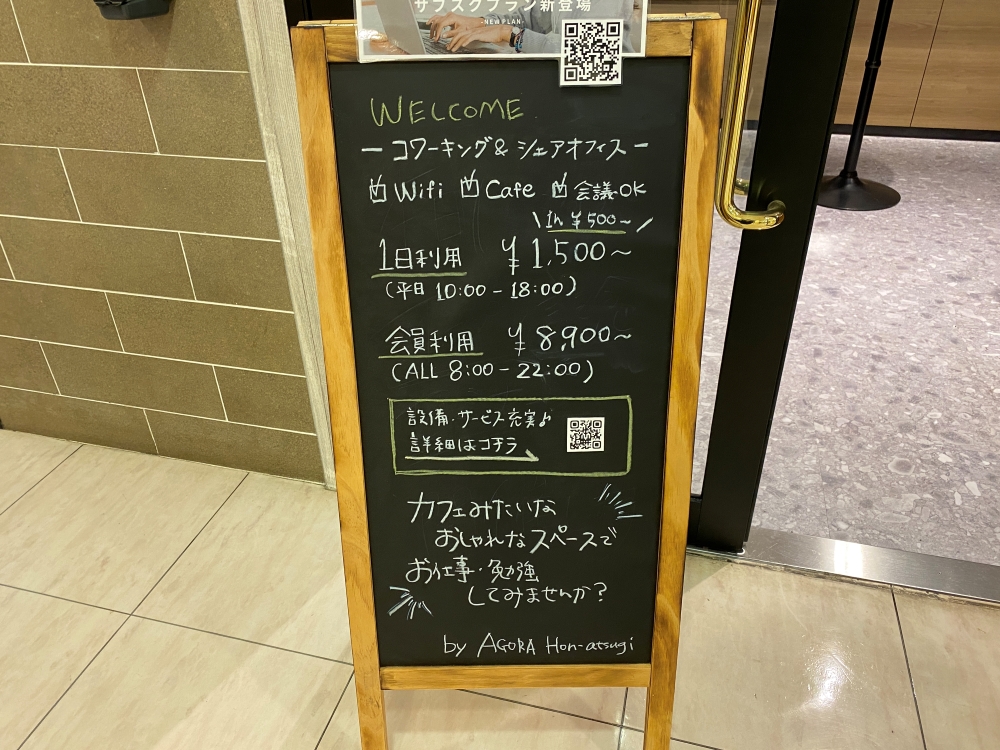 サブスクプラン新登場
-NEW PLAN-
WELCOME
ーコワーキング& シェアオフィスー
Wifi Cafe 会議OK
\ 1h ¥500~ /
1日利用 ¥1,500~
(平日 10:00 - 18:00)
会員利用 ¥8,900~
(ALL 8:00 - 22:00)
設備・サービス充実♪
詳細はコチラ
カフェみたいな
おしゃれなスペースで
お仕事・勉強
してみませんか?
by AGORA Hon-atsugi